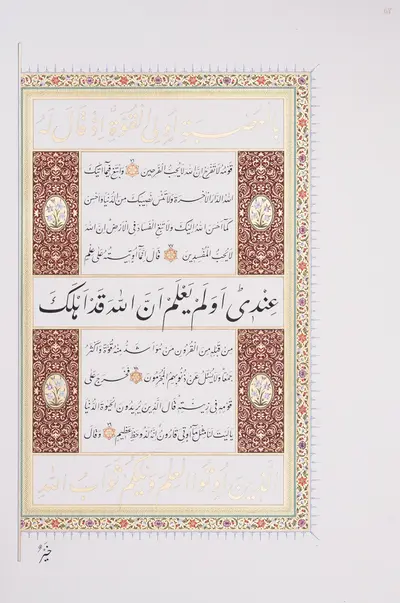 بِالعُصبَةِ اُولِی القُوَّةِ اِذ قالَ لَهُ
قَومُهُ لا تَفرَح اِنَّ اللهَ لا يُحِبُّ الفَرِحين وَابتَغِ فيما آتيكَ
اللهُ الدّارَ الآخِرَةَ وَلا تَنسَ نَصيبَكَ مِنَ الدُّنيا وَاَحسِن
كَما اَحسَنَ اللهُ اِلَيكَ وَلا تَبغِ الفَسادَ فِي الاَرضِ اِنَّ اللهَ
لا يُحِبُّ المُفسِدين قالَ اِنَّما اوتيتُهُ عَلى عِلمٍ
عِندی اَوَلَم يَعلَم اَنَّ اللهَ قَد اَهلَكَ
مِن قَبلِهِ مِنَ القُرونِ مَن هُوَ اَشَدُّ مِنهُ قُوَّةً وَاَكثَرُ
جَمعًا وَلا يُسئَلُ عَن ذُنوبِهِمُ المُجرِمُون فَخَرَجَ عَلى
قَومِهِ فی زينَتِهِ قالَ الَّذينَ يُريدُونَ الحَيوةَ الدُّنيا
يا لَيتَ لَنا مِثلَ ما اوتِیَ قارُونُ اِنَّهُ لَذُو حَظٍّ عَظيمٍ وَقالَ
الَّذينَ اُوتُوا العِلمَ وَيلَكُم ثَوابُ اللهِ
خَيرٌ